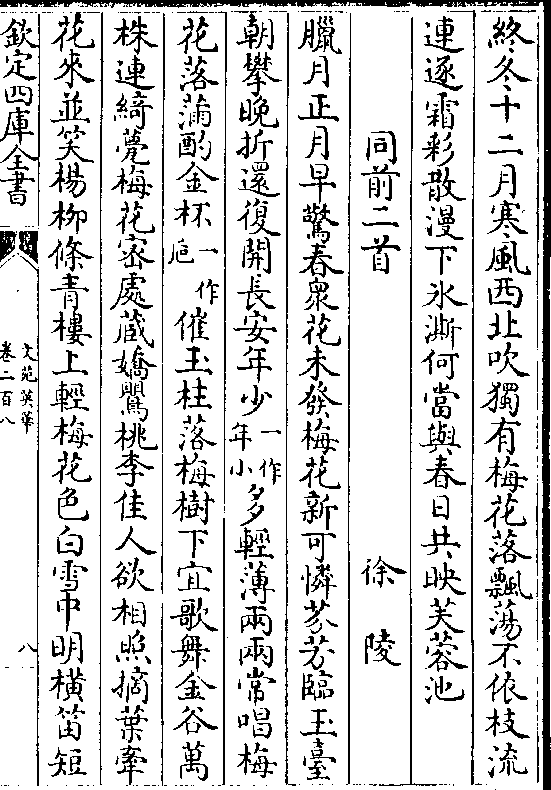 終冬十二月寒風西北吹獨有梅花落飄蕩不依枝流
連逐霜彩散漫下氷澌何當與春日共映芙蓉池
同前二首 徐陵
臘月正月早驚春衆花未發梅花新可憐芬芳臨玉臺
朝攀晚折還復開長安年少一作年小多輕薄兩兩常唱梅
花落滿酌金杯一作巵催玉柱落梅樹下宜歌舞金谷萬
株連綺甍梅花宻處蔵嬌鶯桃李佳人欲相照摘葉牽
花來並笑楊柳條青樓上輕梅花色白雪中明橫笛短
欽定四庫全書
文苑英華
卷二百八
八